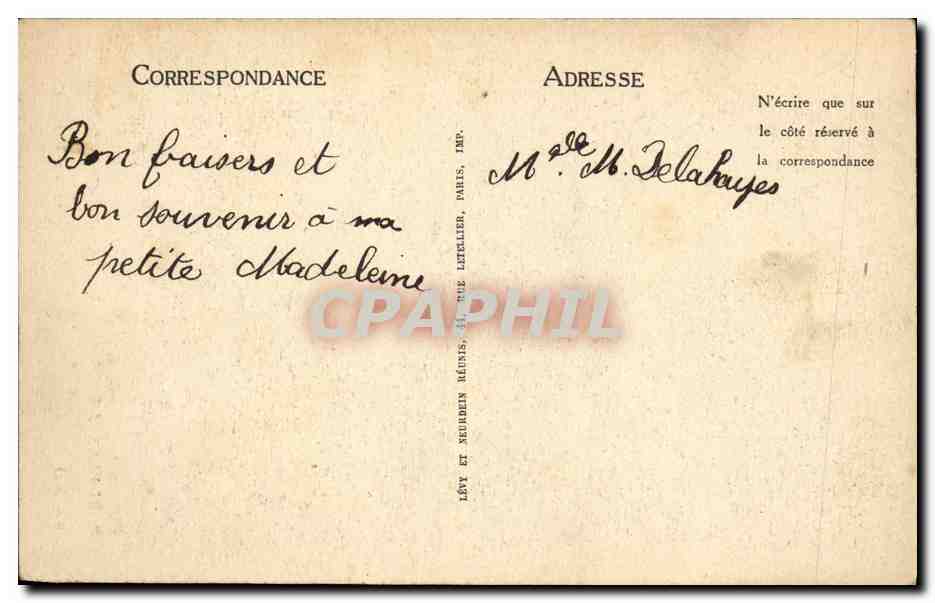 CORRESPONDANCE
Bon baisers et
bon souvenir à ma
petite Madeleine
LÉVY ET NEURDEIN RÉUNIS, 44, RUE LETELLIER, PARIS, IMP.
ADRESSE
N'écrire que sur
le côté réservé à
la correspondance
Melle. M. Delahayes
CPAPHIL